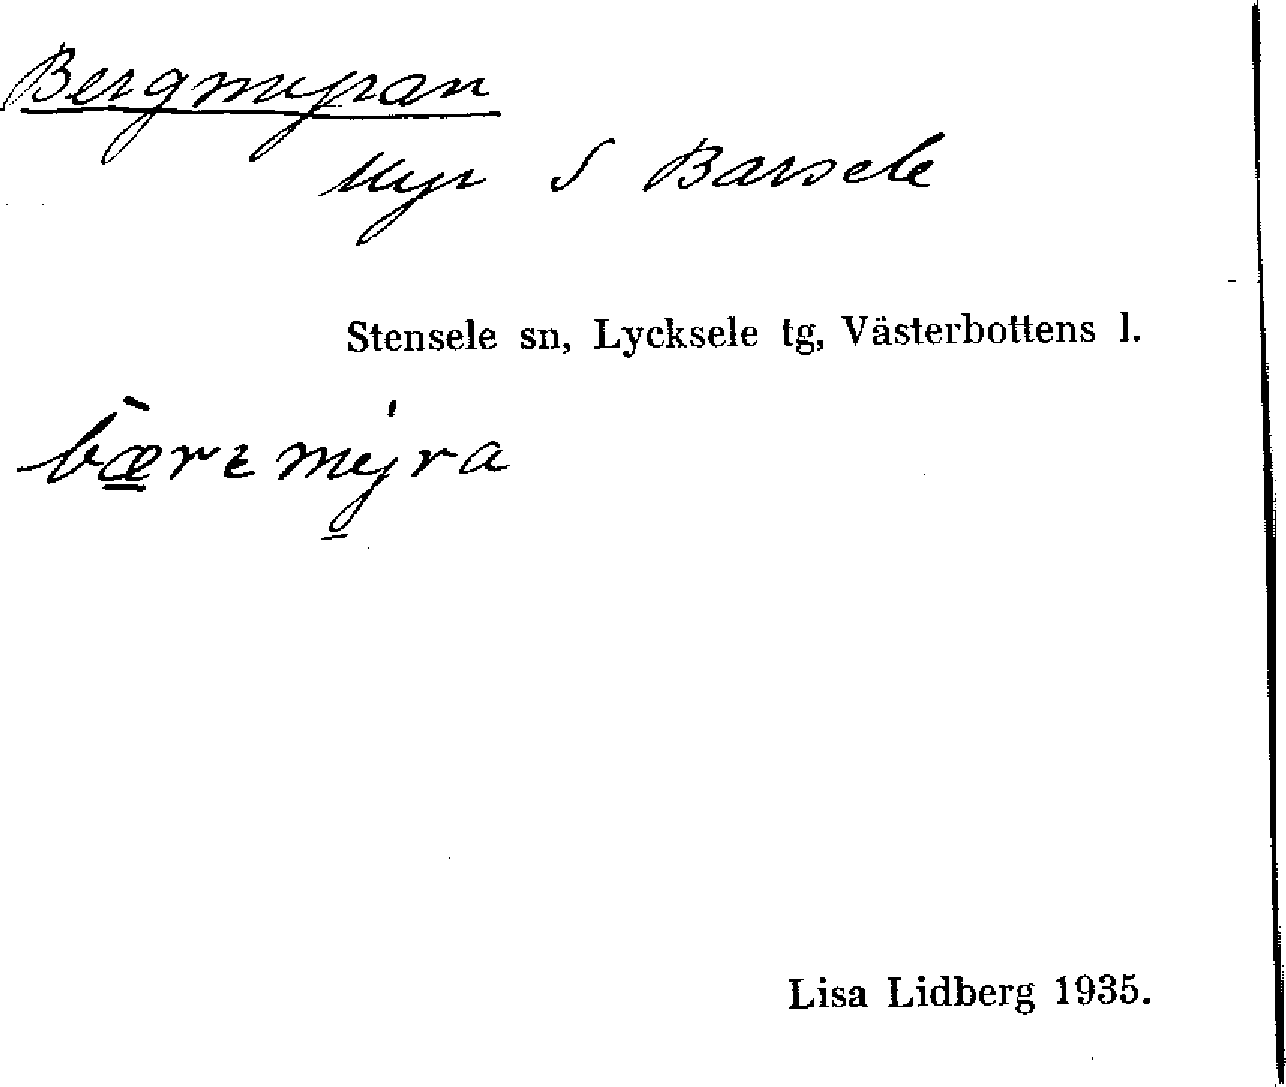 Bergmyran
Myr S Barsele
Stensele sn, Lycksele tg, Västerbottens l.
bæ̀rɛmý̠ra
Lisa Lidberg 1935.